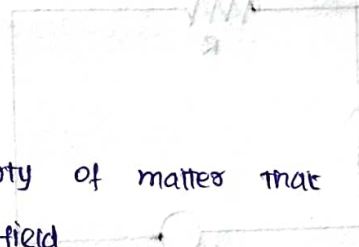 of matter that
field